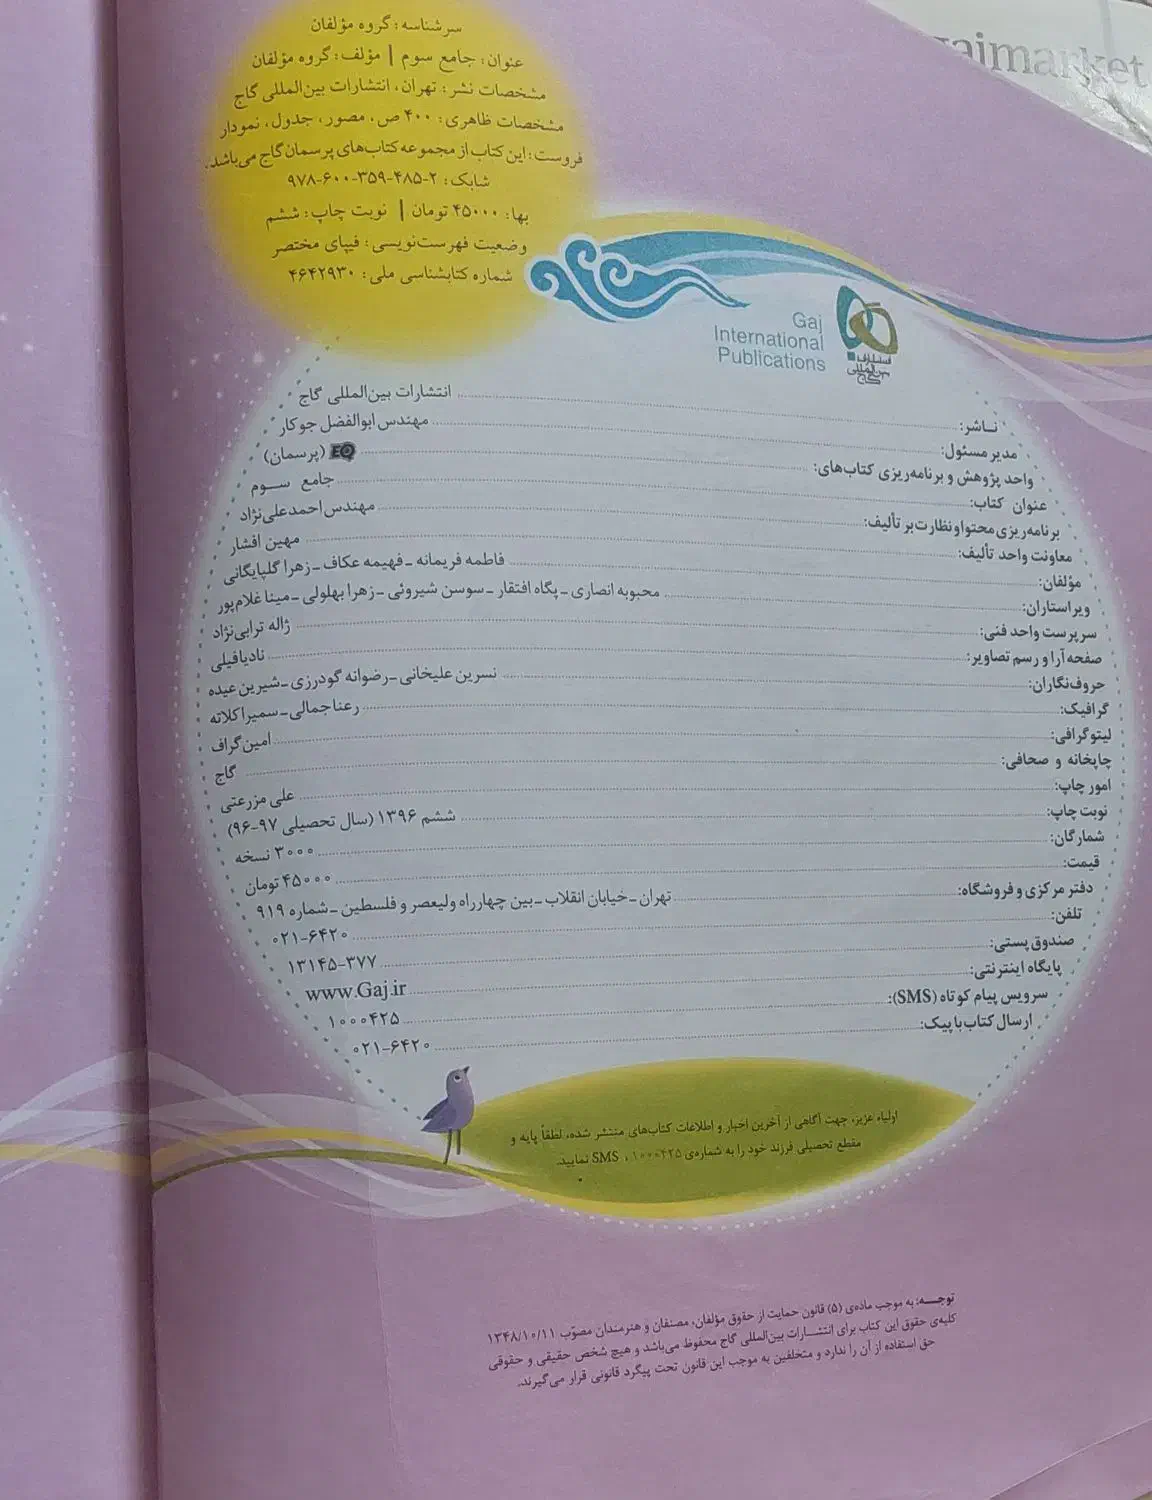 gajmarket
سرشناسه: گروه مؤلفان
عنوان: جامع سوم | مؤلف: گروه مؤلفان
مشخصات نشر: تهران، انتشارات بین‌المللی گاج
مشخصات ظاهری: ۴۰۰ ص، مصور، جدول، نمودار
فروست: این کتاب از مجموعه کتاب‌های پرسمان گاج می‌باشد.
شابک: ۲-۴۸۵-۳۵۹-۶۰۰-۹۷۸
بها: ۴۵۰۰۰ تومان | نوبت چاپ: ششم
وضعیت فهرست‌نویسی: فیپای مختصر
شماره کتابشناسی ملی: ۴۶۴۲۹۳۰
Gaj
International
Publications
انتشارات
بین‌المللی
گاج
ناشر: انتشارات بین‌المللی گاج
مدیر مسئول: مهندس ابوالفضل جوکار
واحد پژوهش و برنامه‌ریزی کتاب‌های: EQ (پرسمان)
عنوان کتاب: جامع سـوم
برنامه‌ریزی محتوا و نظارت بر تألیف: مهندس احمد علی‌نژاد
معاونت واحد تألیف: مهین افشار
مؤلفان: فاطمه فریمانه ـ فهیمه عکاف ـ زهرا گلپایگانی
ویراستاران: محبوبه انصاری ـ پگاه افتقار ـ سوسن شیروئی ـ زهرا بهلولی ـ مینا غلام‌پور
سرپرست واحد فنی: ژاله ترابی‌نژاد
صفحه‌آرا و رسم تصاویر: نادیا فیلی
حروف‌نگاران: نسرین علیخانی ـ رضوانه گودرزی ـ شیرین عیده
گرافیک: رعنا جمالی ـ سمیرا کلاته
لیتوگرافی: امین‌گراف
چاپخانه و صحافی: گاج
امور چاپ: علی مزرعتی
نوبت چاپ: ششم ۱۳۹۶ (سال تحصیلی ۹۷-۹۶)
شمارگان: ۳۰۰۰ نسخه
قیمت: ۴۵۰۰۰ تومان
دفتر مرکزی و فروشگاه: تهران ـ خیابان انقلاب ـ بین چهارراه ولیعصر و فلسطین ـ شماره ۹۱۹
تلفن: ۰۲۱-۶۴۲۰
صندوق پستی: ۱۳۱۴۵-۳۷۷
پایگاه اینترنتی: www.Gaj.ir
سرویس پیام کوتاه (SMS): ۱۰۰۰۴۲۵
ارسال کتاب با پیک: ۰۲۱-۶۴۲۰
اولیاء عزیز، جهت آگاهی از آخرین اخبار و اطلاعات کتاب‌های منتشر شده، لطفاً پایه و
مقطع تحصیلی فرزند خود را به شماره‌ی ۱۰۰۰۴۲۵ ، SMS نمایید.
توجـه: به موجب ماده‌ی (۵) قانون حمایت از حقوق مؤلفان، مصنفان و هنرمندان مصوّب ۱۳۴۸/۱۰/۱۱
کلیه‌ی حقوق این کتاب برای انتشـارات بین‌المللی گاج محفوظ می‌باشد و هیچ شخص حقیقی و حقوقی
حق استفاده از آن را ندارد و متخلفین به موجب این قانون تحت پیگرد قانونی قرار می‌گیرند.